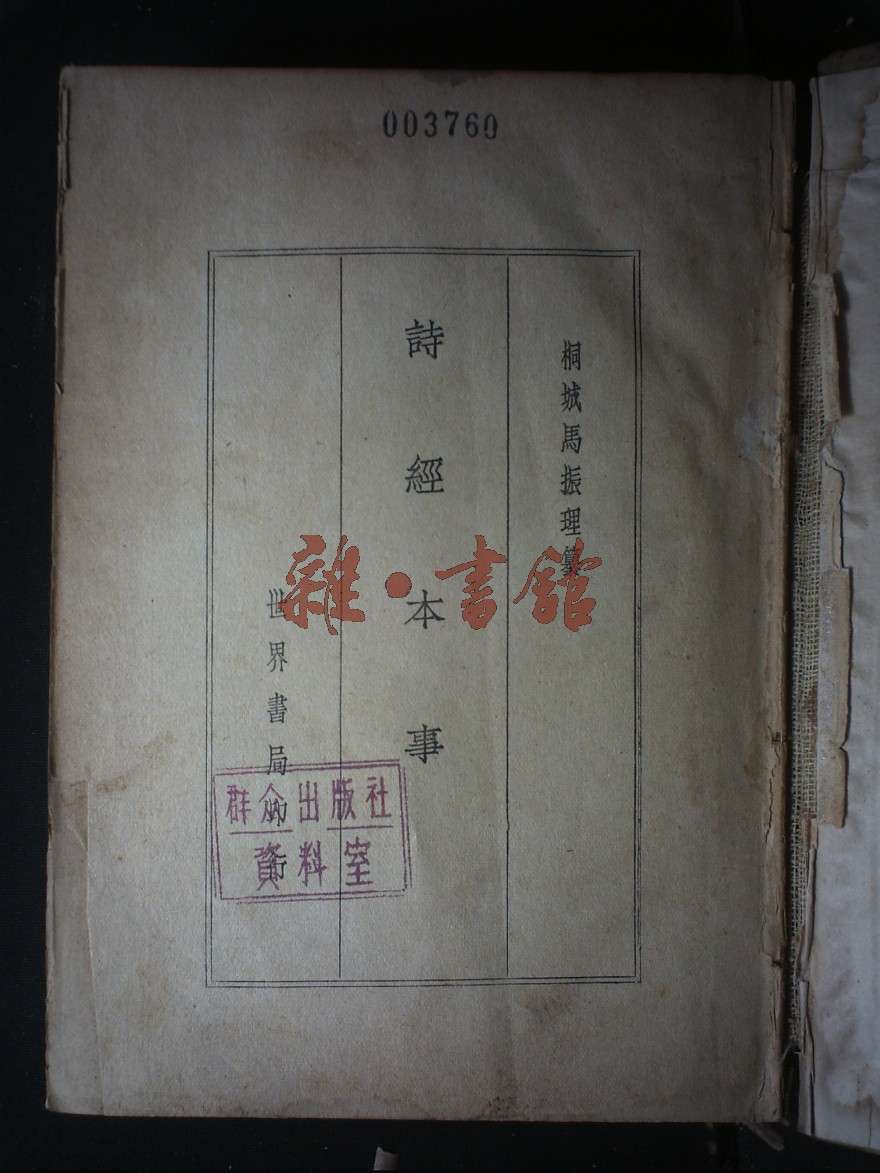 003760
桐城馬振理纂
詩經本事
世界書局印行
雜·書館
群众出版社
資料室